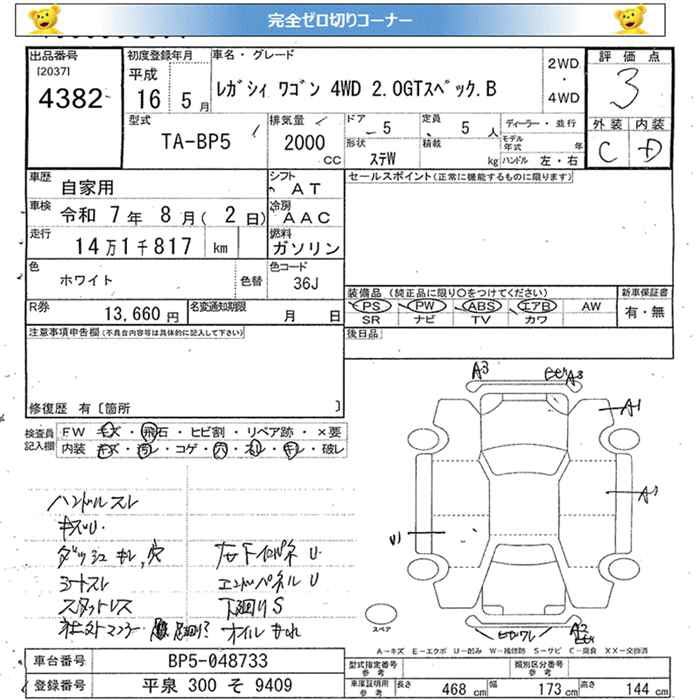 完全ゼロ切りコーナー
出品番号
[2037]
4382
初度登録年月
平成
16年 5月
車名・グレード
ﾚｶﾞｼｨ ﾜｺﾞﾝ 4WD 2.0GTｽﾍﾟｯｸ.B
2WD
・
4WD
評価点
3
外装 内装
C D
型式
TA-BP5
排気量
2000
CC
ドア
5
定員
5 人
ディーラー・並行
モデル
年式
年
形状
ステW
積載
kg
ハンドル 左・右
車歴
自家用
シフト
AT
セールスポイント(正常に機能するものに限ります)
車検
令和 7年 8月( 2日)
冷房
AAC
走行
14万1千817 km
燃料
ガソリン
色
ホワイト
色替
色コード
36J
装備品 (純正品に限り○をつけてください)
PS PW ABS エアB AW
SR ナビ TV カワ
新車保証書
有・無
R券
13,660円
名変通知期限
月 日
後日品
注意事項申告欄(不具合内容等は具体的に記入して下さい)
修復歴 有〔箇所 〕
検査員
記入欄
FW キズ・飛石・ヒビ割・リペア跡・×要
内装 キズ・汚レ・コゲ・穴・スレ・キレ・破レ
ハンドルスレ
キズU.
ダッシュキレ,穴
シートスレ
スタットレス
エンドパネルU
下廻りS
オイルもれ
A3
A3
A1
A1
U
A2
スペア
A－キズ E－エクボ U－凹み W－補修跡 S－サビ C－腐食 XX－交換済
車台番号
BP5-048733
登録番号
平泉 300 そ 9409
型式指定番号
参考
類別区分番号
参考
車庫証明用
参考
長さ
468 cm
幅
173 cm
高さ
144 cm